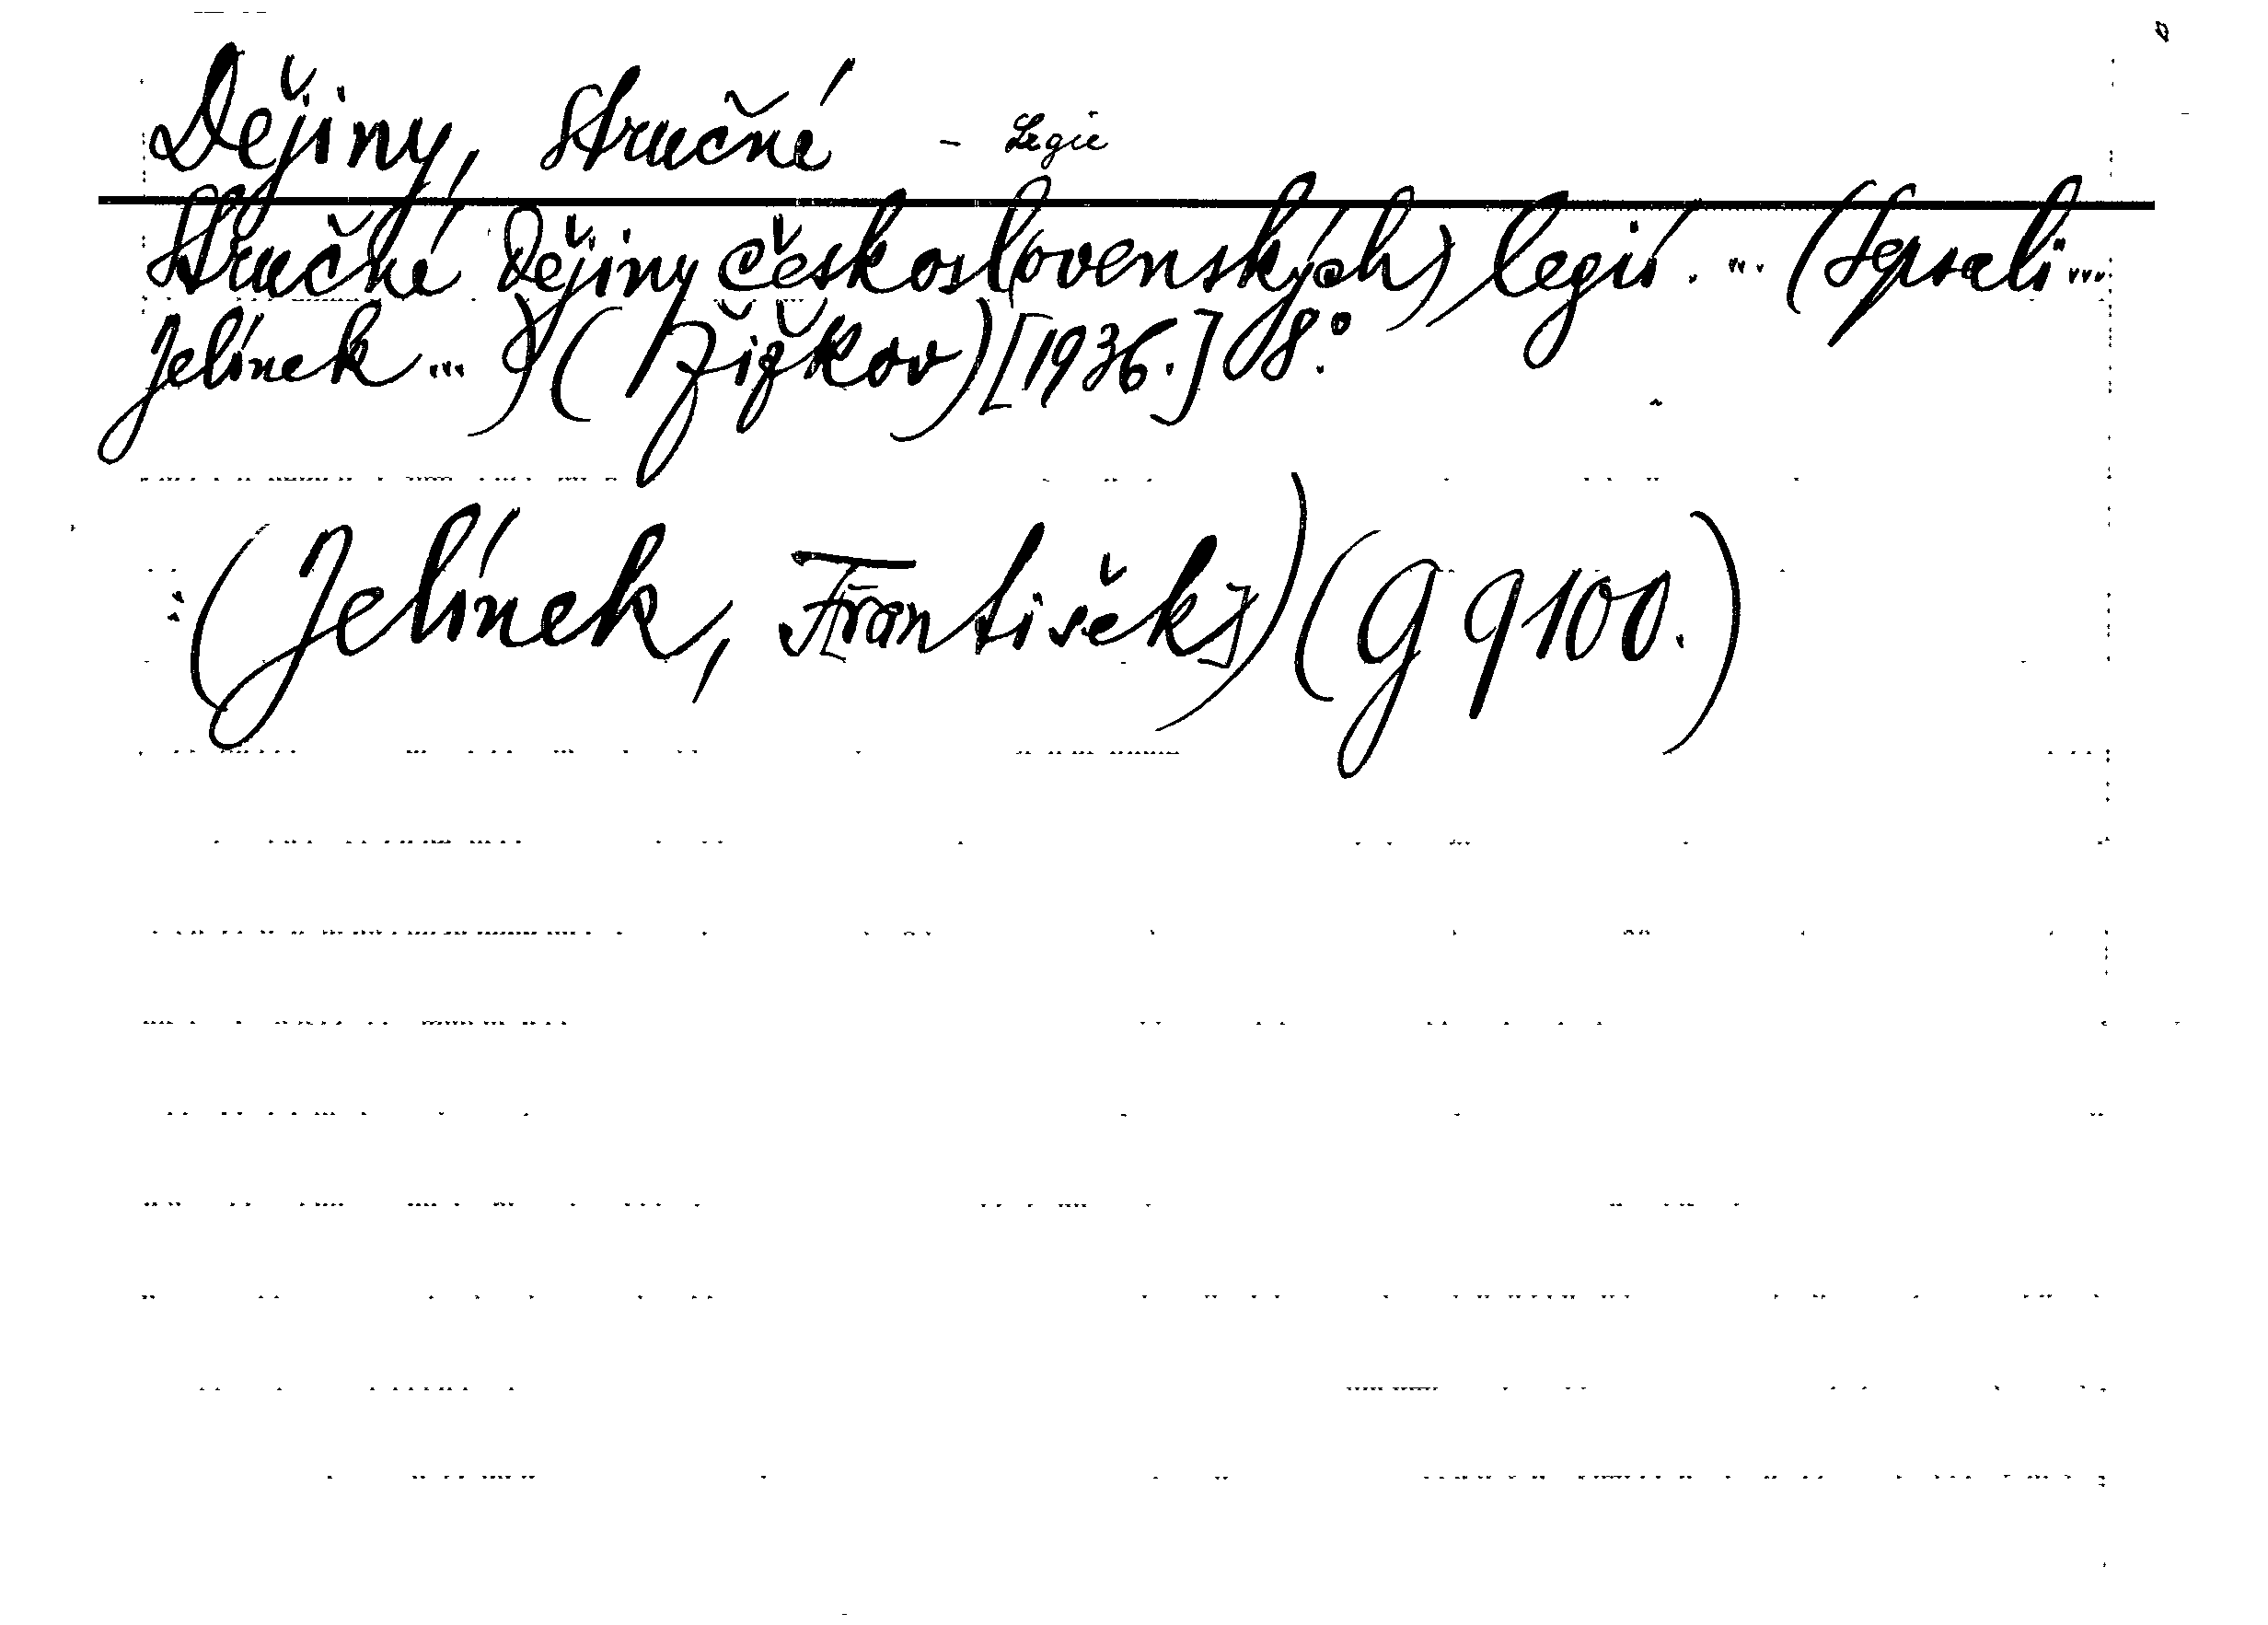 Dějiny, stručné - Legie
Stručné dějiny česko(slovenských) legií. ... (Sepsali ...
Jelínek ...) (Žižkov) [1936.] 8°.
(Jelínek, F[rantišek]) (G 9100.)